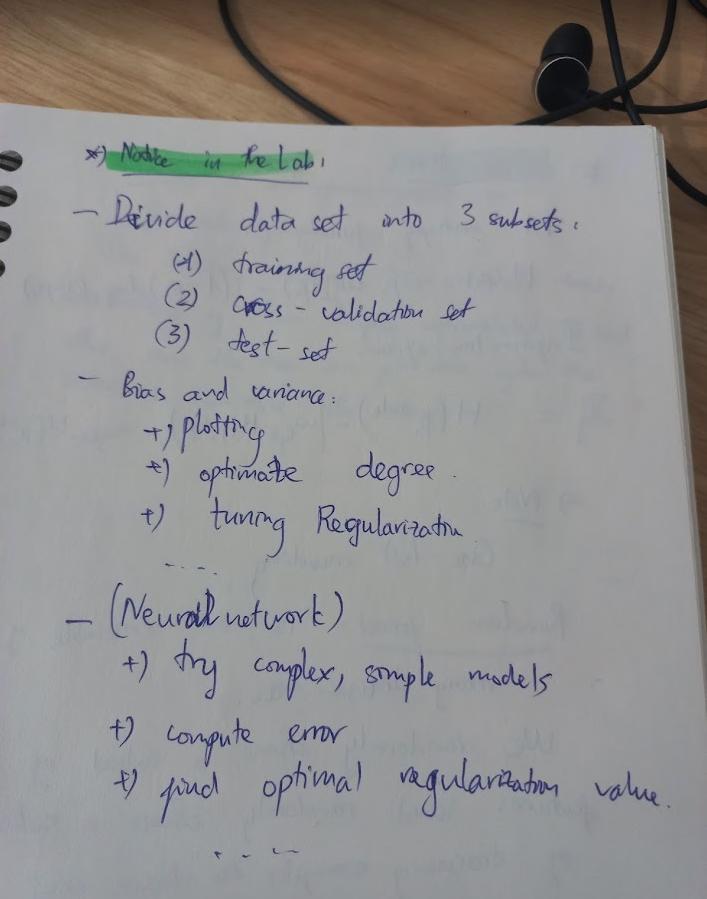 *) Notice in the Lab:
- Divide data set into 3 subsets:
(1) training set
(2) cross-validation set
(3) test-set
- Bias and variance:
+) plotting
+) optimate degree.
+) tuning Regularization
....
- (Neural network)
+) try complex, simple models
+) compute error
+) find optimal regularization value.
....